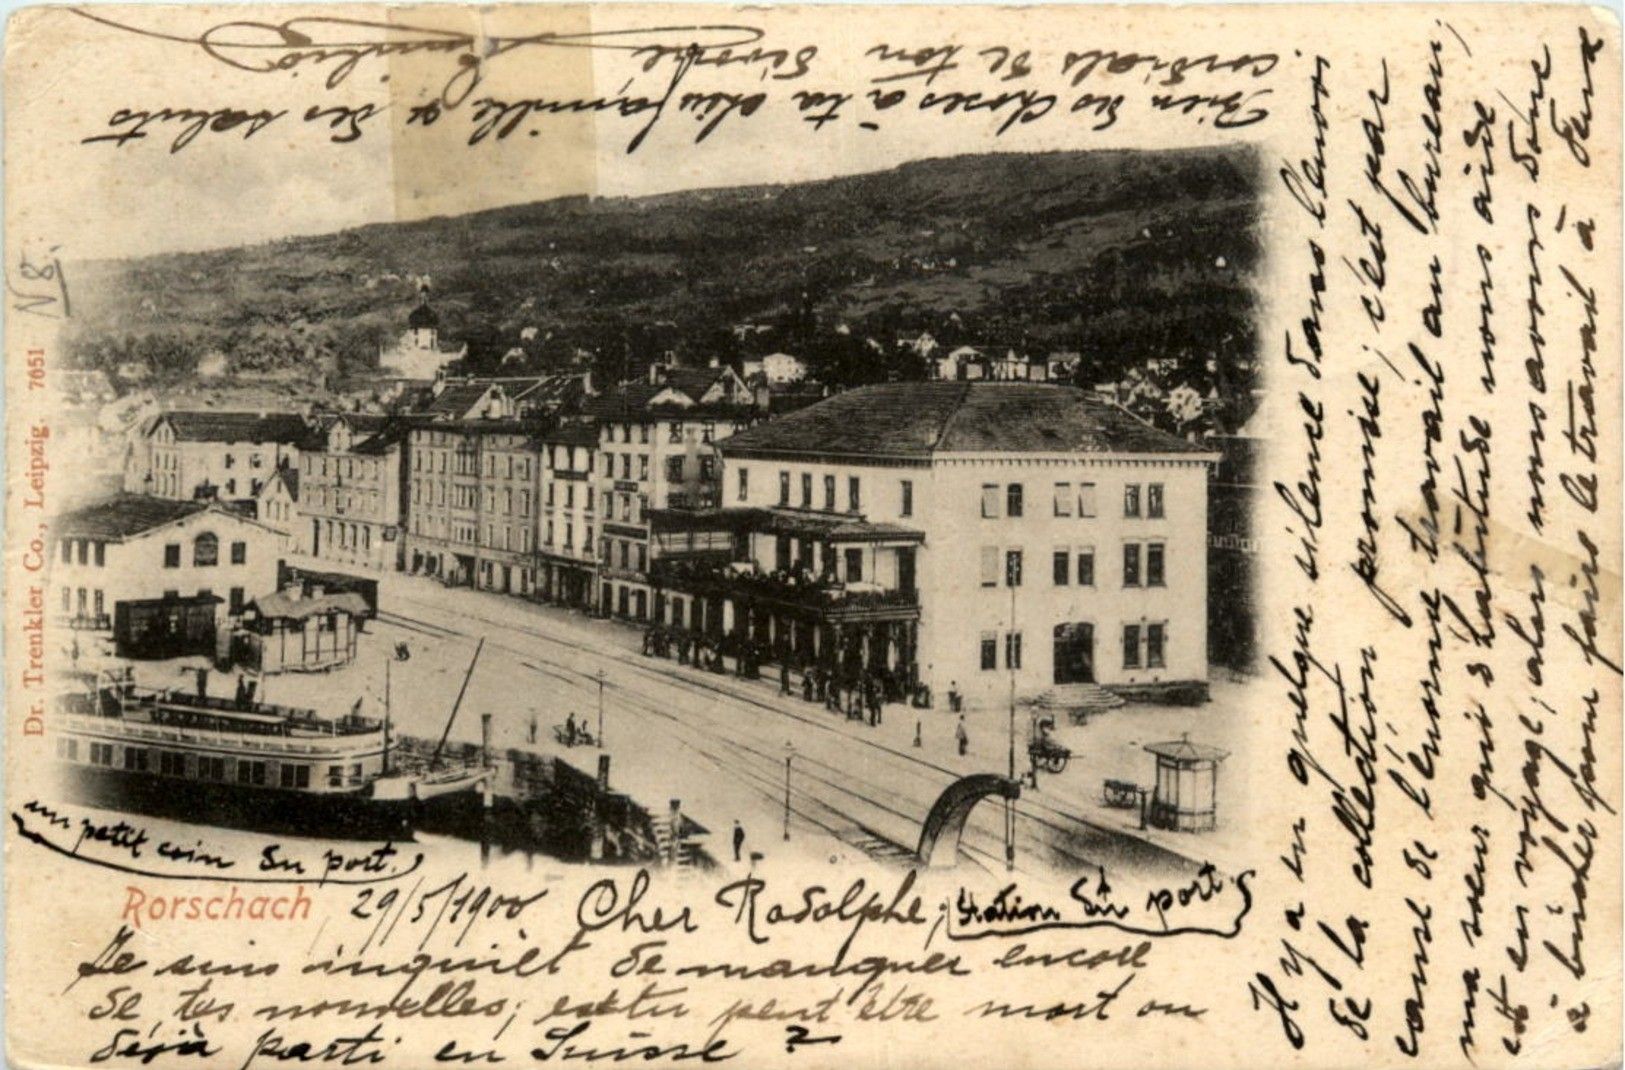 Dr. Trenkler Co., Leipzig. 7651
N 8.
un petit coin du port.
Rorschach
29/5/1900
Cher Rodolphe,
station du port
Je suis inquièt de manquer encore
de tes nouvelles; estu peut être mort ou
déjà parti en Suisse?
Il y a eu quelque silence dans l'envoi
de la collection promise; c'est par
cause de l'énorme travail au bureau;
ma soeur qui d'habitude nous aide
est en voyage, alors nous avons donc
à bûcher pour faire le travail à deux
Bien des choses à ta chère famille & des saluts
cordials de ton dévoué
Emilio